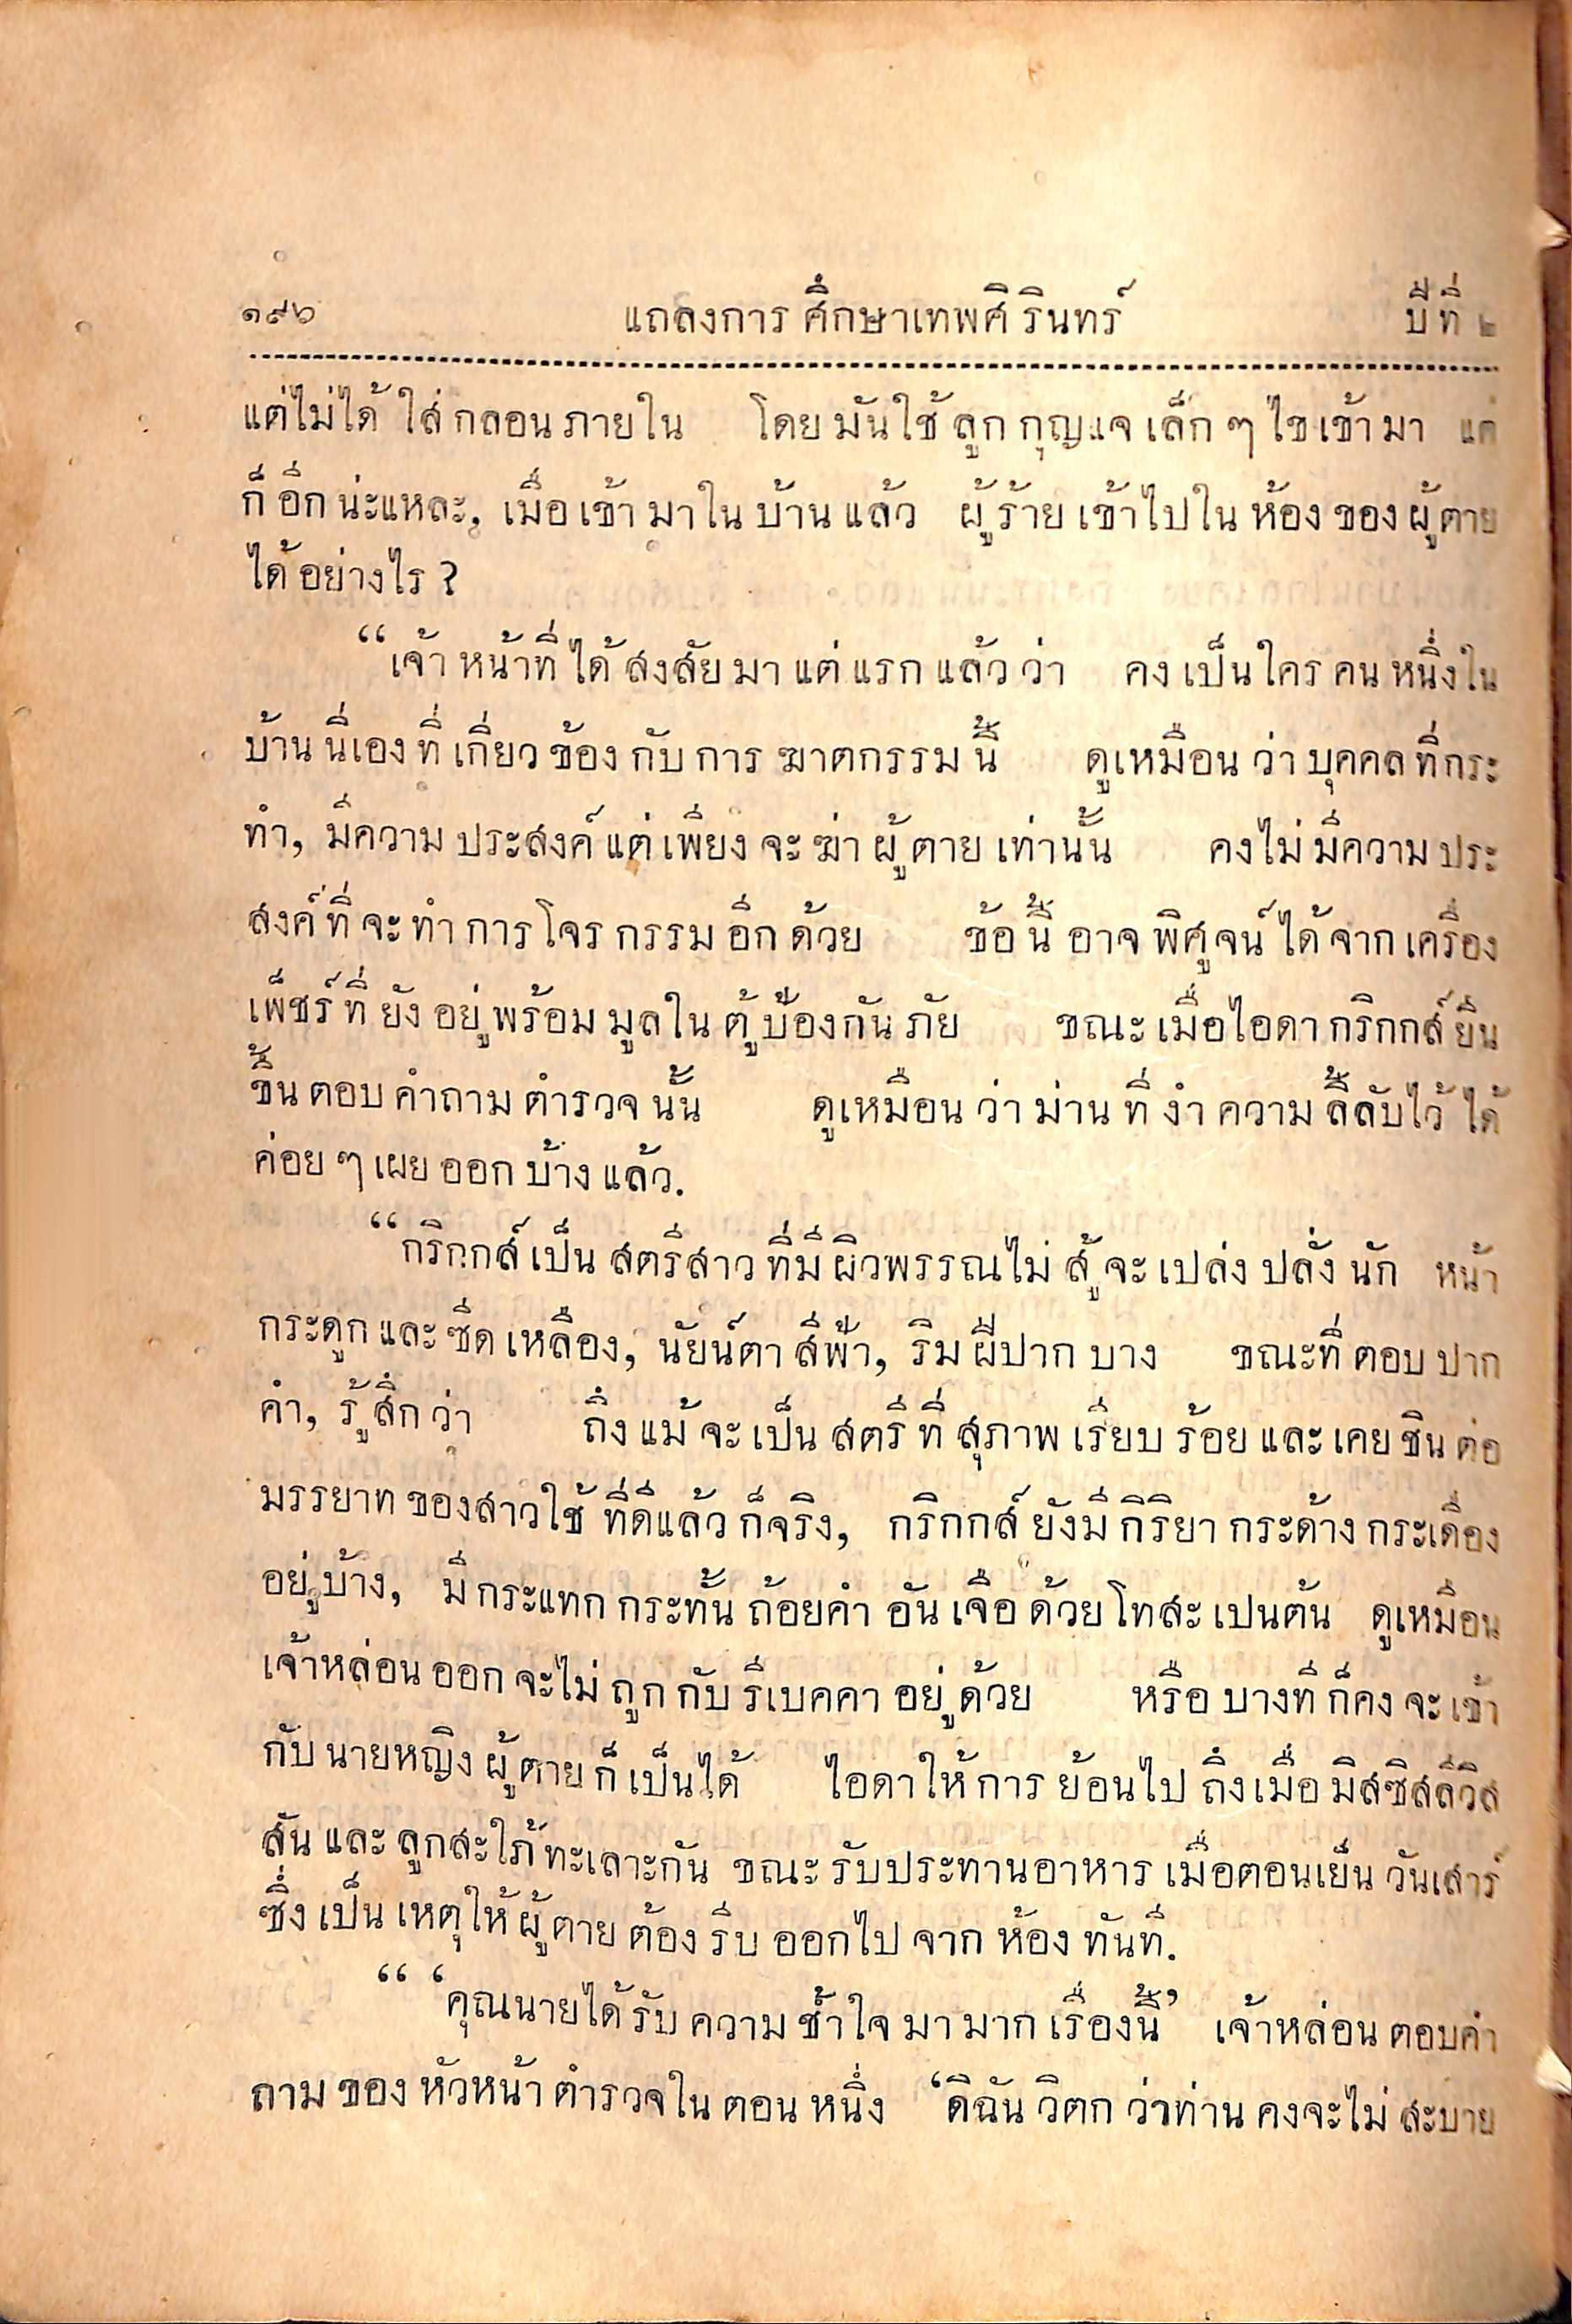 ๑๙๖ แถลงการศึกษาเทพศิรินทร์ ปีที่ ๒
แต่ไม่ได้ใส่กลอนภายใน โดยมันใช้ลูกกุญแจเล็กๆ ไขเข้ามา แต่
ก็อีกน่ะแหละ, เมื่อเข้ามาในบ้านแล้ว ผู้ร้ายเข้าไปในห้องของผู้ตาย
ได้อย่างไร ?
“เจ้าหน้าที่ได้สงสัยมาแต่แรกแล้วว่า คงเป็นใครคนหนึ่งใน
บ้านนี่เองที่เกี่ยวข้องกับการฆาตกรรมนี้ ดูเหมือนว่าบุคคลที่กระ
ทำ, มีความประสงค์แต่เพียงจะฆ่าผู้ตายเท่านั้น คงไม่มีความประ
สงค์ที่จะทำการโจรกรรมอีกด้วย ข้อนี้อาจพิศูจน์ได้จากเครื่อง
เพ็ชร์ที่ยังอยู่พร้อมมูลในตู้ป้องกันภัย ขณะเมื่อไอดากริกกส์ยืน
ขึ้นตอบคำถามตำรวจนั้น ดูเหมือนว่าม่านที่งำความลี้ลับไว้ ได้
ค่อยๆ เผยออกบ้างแล้ว.
“กริกกส์เป็นสตรีสาวที่มีผิวพรรณไม่สู้จะเปล่งปลั่งนัก หน้า
กระดูกและซีดเหลือง, นัยน์ตาสีฟ้า, ริมฝีปากบาง ขณะที่ตอบปาก
คำ, รู้สึกว่า ถึงแม้จะเป็นสตรีที่สุภาพเรียบร้อยและเคยชินต่อ
มรรยาทของสาวใช้ที่ดีแล้วก็จริง, กริกกส์ยังมีกิริยากระด้างกระเดื่อง
อยู่บ้าง, มีกระแทกกระทั้นถ้อยคำอันเจือด้วยโทสะเปนต้น ดูเหมือน
เจ้าหล่อนออกจะไม่ถูกกับรีเบคคาอยู่ด้วย หรือบางทีก็คงจะเข้า
กับนายหญิงผู้ตายก็เป็นได้ ไอดาให้การย้อนไปถึงเมื่อมิสซิสลีวิส
สันและลูกสะใภ้ทะเลาะกัน ขณะรับประทานอาหารเมื่อตอนเย็นวันเสาร์
ซึ่งเป็นเหตุให้ผู้ตายต้องรีบออกไปจากห้องทันที.
“ ‘คุณนายได้รับความช้ำใจมามากเรื่องนี้’ เจ้าหล่อนตอบคำ
ถามของหัวหน้าตำรวจในตอนหนึ่ง ‘ดิฉันวิตกว่าท่านคงจะไม่สะบาย